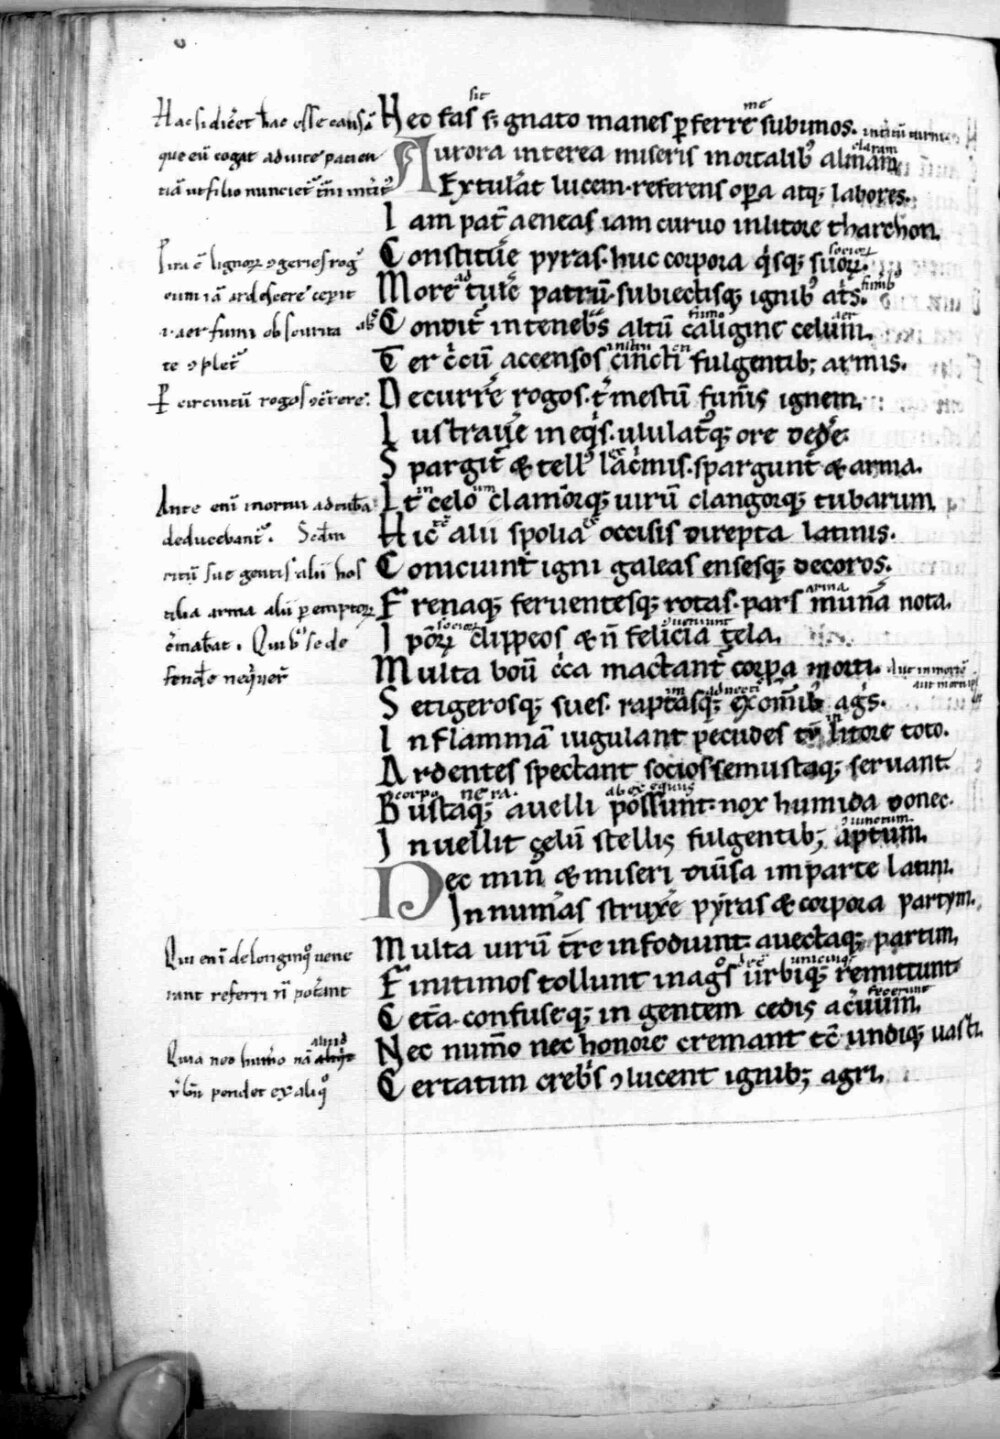 Hec fas s; gnato manes p̲ferre sub imos.
Aurora interea miseris mortalibꝰ almam
Extulat̄ lucem · referens op̲a atq; labores.
Iam pat̄ aeneas iam curuo in litore tharchon.
Constitue᷑ pyras · huc corpora q͛sq; suoꝝ.
More tule᷑ patrū · subiectisq; ignibꝰ at͛s.
Condit᷑ in tenebs͛ altū caligine celum.
Ter c͛cū accensos cincti fulgentib; armis.
Decurre᷑ rogos · t͛ mestū fun͛is ignem.
Lustraue᷑ in eq͛s · ululatꝰq; ore dede᷑.
Spargit᷑ & tellꝰ lac͛mis · spargunt᷑ & arma.
It celo clamorq; uirū clangorq; tubarum.
Hic alii spolia occisis direpta latinis.
Coniciunt igni galeas ensesq; decoros.
Frenaq; feruentesq; rotas · pars mun͛a nota.
Ipōꝝ clippeos & n̄ felicia tela.
Multa boū c͛ca mactant᷑ corp̲a morti.
Setigerosq; sues · raptasq; ex om̄ibꝰ ag͛s.
In flammā iugulant pecudes tū litore toto.
Ardentes spectant socios semustaq; seruant
Bustaq; auelli possunt · nox humida donec.
Inuertit celū stellis fulgentib; aptum.
Nec minꝰ & miseri diu͛sa in parte latini.
Innum͛as struxe᷑ pyras & corpora partym.
Multa uirū t͛re infodiunt · auectaq; partim.
Finitimos tollunt in ag͛os urbiq; remittunt
Cet͛a · confuseq; ingentem cedis ac͛uum.
Nec num͛o nec honore cremant tc̄ undiq; uasti.
Certatim creb͛s ꝯlucent ignib; agri.
Hac si dic͛et hac esse causā
que eū cogat ad uite patien
tiā ut filio nunciet᷑
Pira ē lignoꝝ ꝯgeries rogꝰ
cum iā ardescere cepit
.i. aer fumi obscurita
te ꝯplet᷑
P̲ circuitū rogos
Ante enī mortui ad tuba
deducebant᷑. Scd̄m
ritū sue gentis alii hos
tilia arma alii p̲emptoꝝ
c͛mabat. Quibꝰ se de
fend͛e neq͛uer̄
Qui enī de longinq͛ uene
rant referri n̄ pot͛ant
Quia nec num͛o nā aliud
u͛bū pendet ex aliq͛